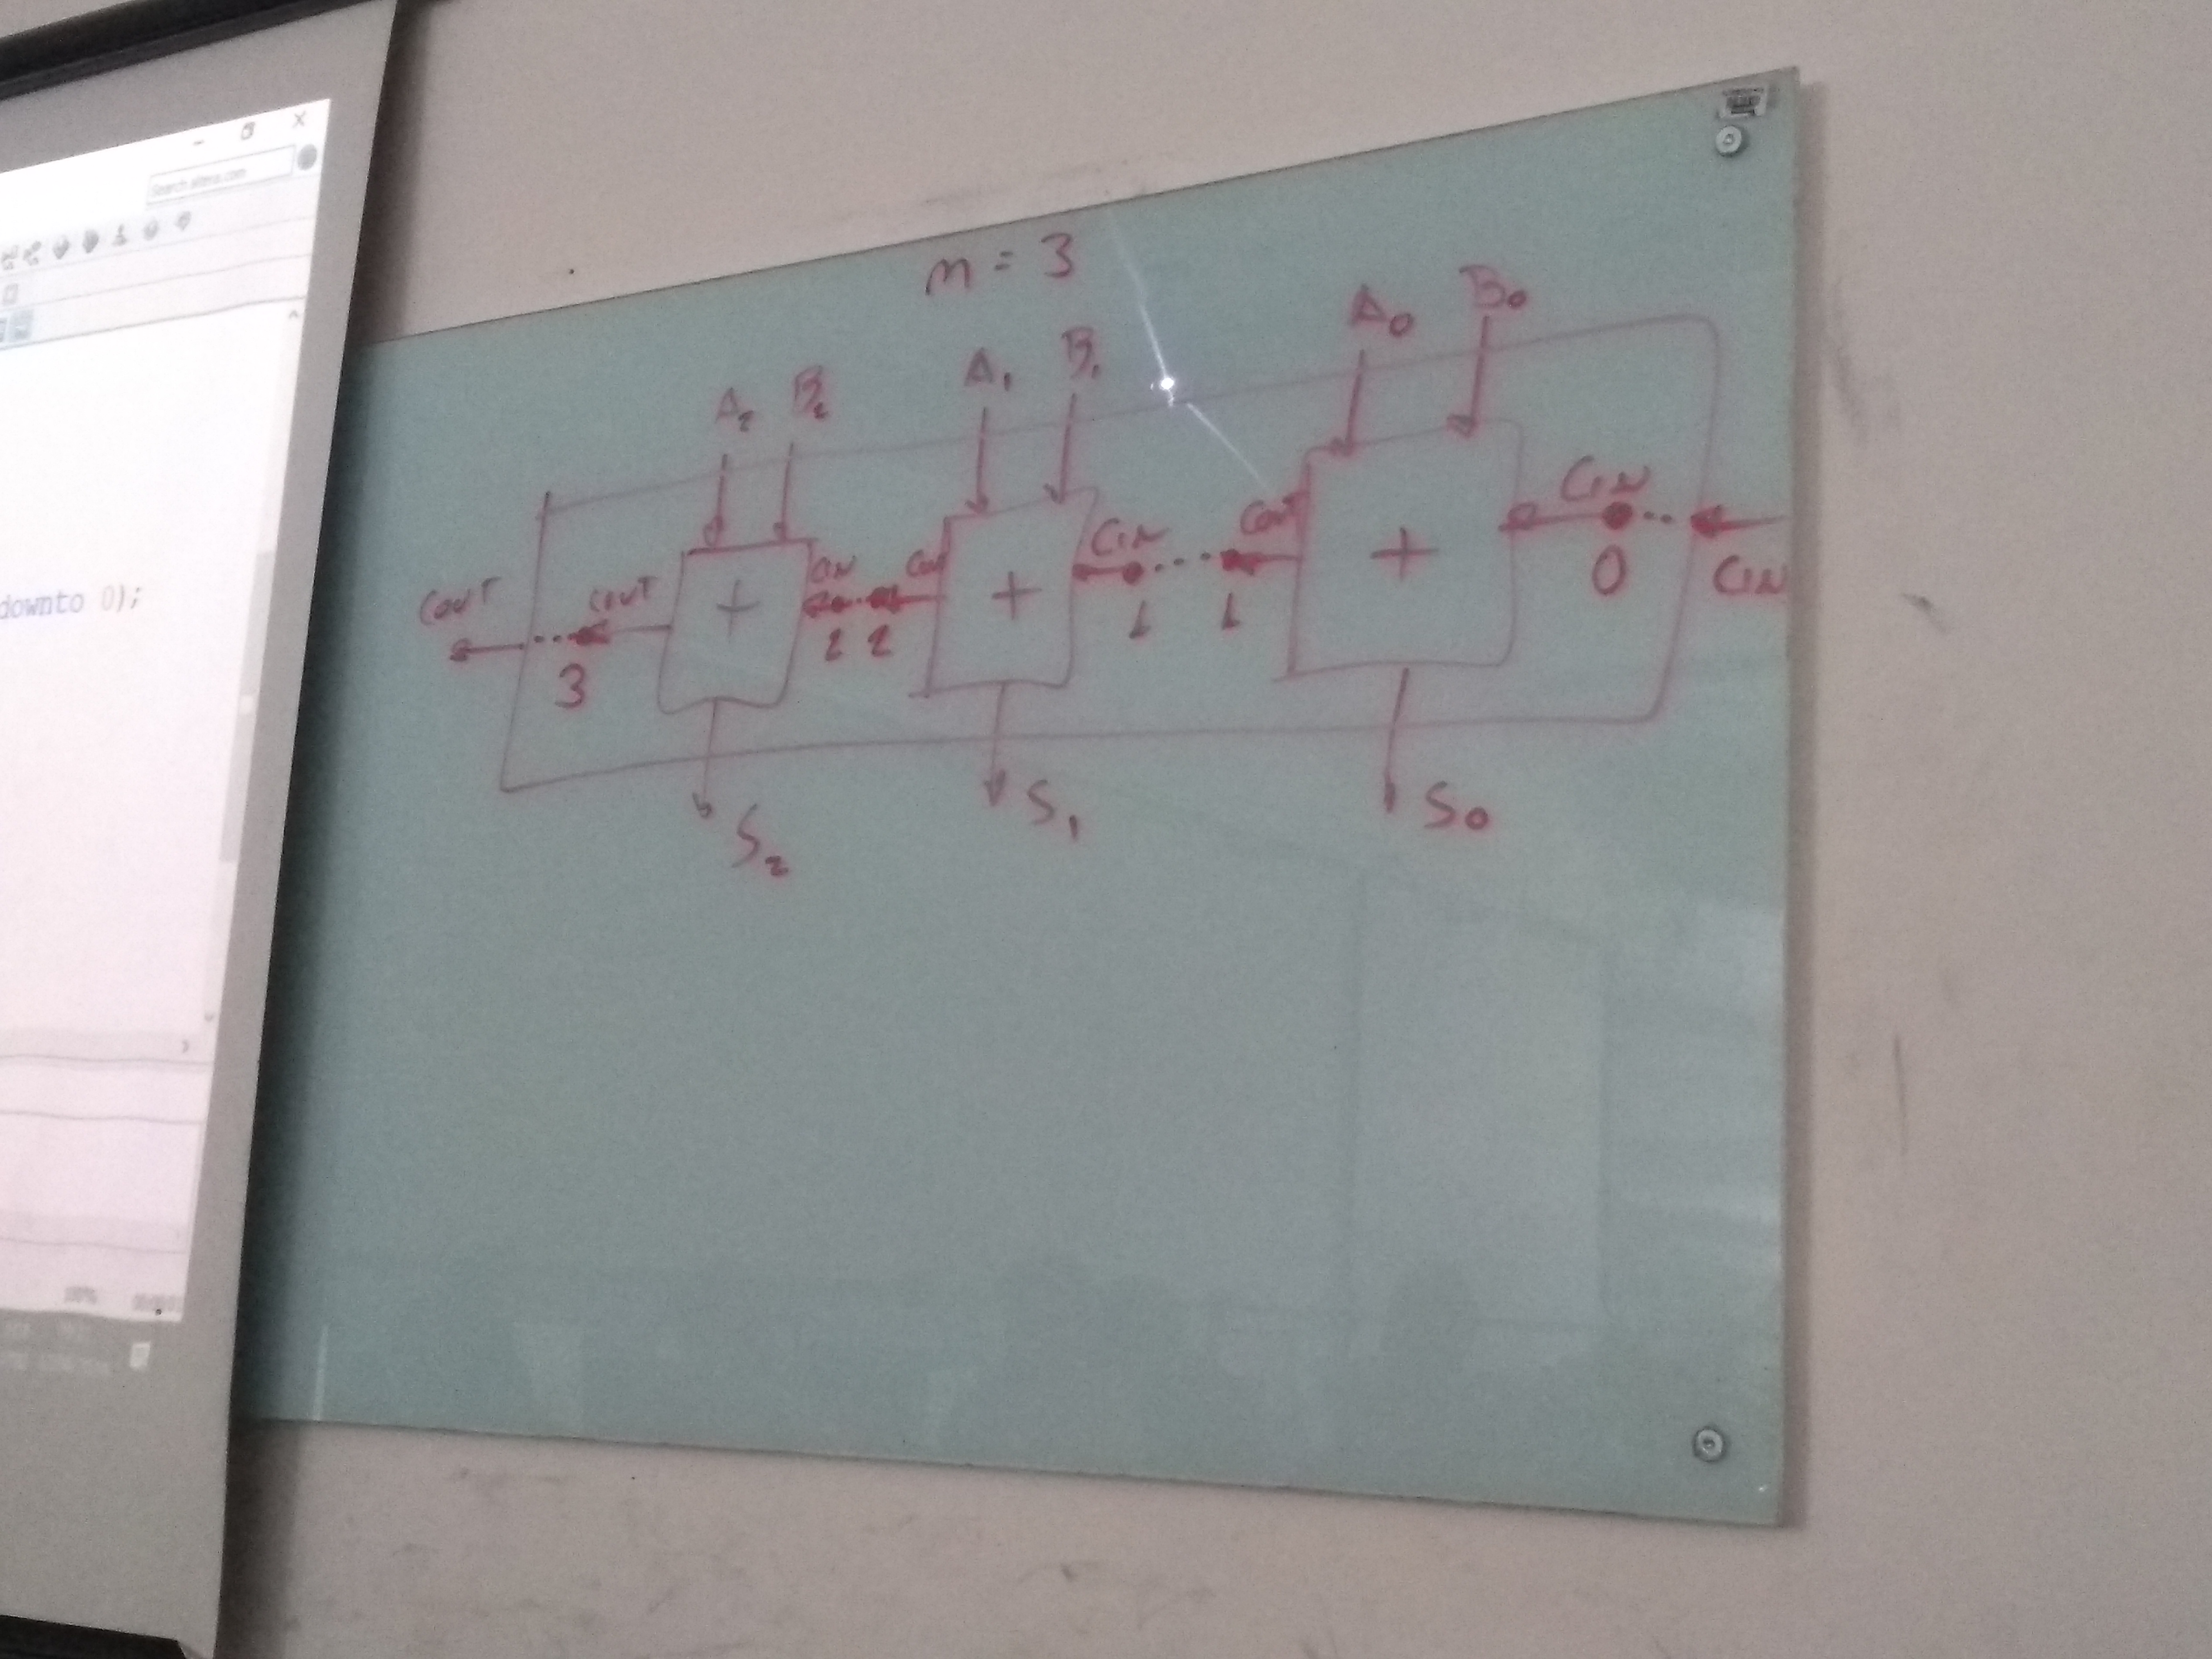 Search altera.com
downto 0);
100%
m = 3
A₂ B₂ A₁ B₁ A₀ B₀
Cout Cout + CIN Cout + CIN Cout + CIN CIN
3 2 2 1 1 0
S₂ S₁ S₀